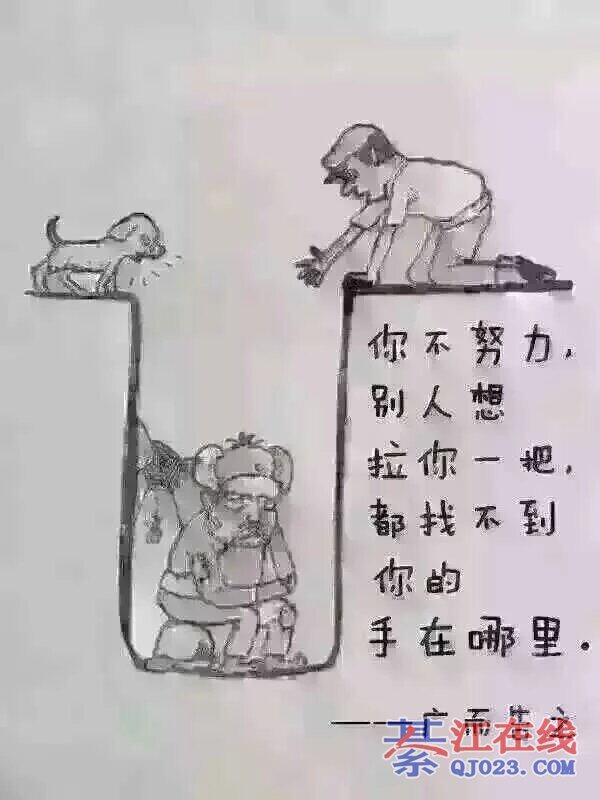 你不努力,
别人想
拉你一把,
都找不到
你的
手在哪里.
——广而告之
綦江在线
QJ023.COM